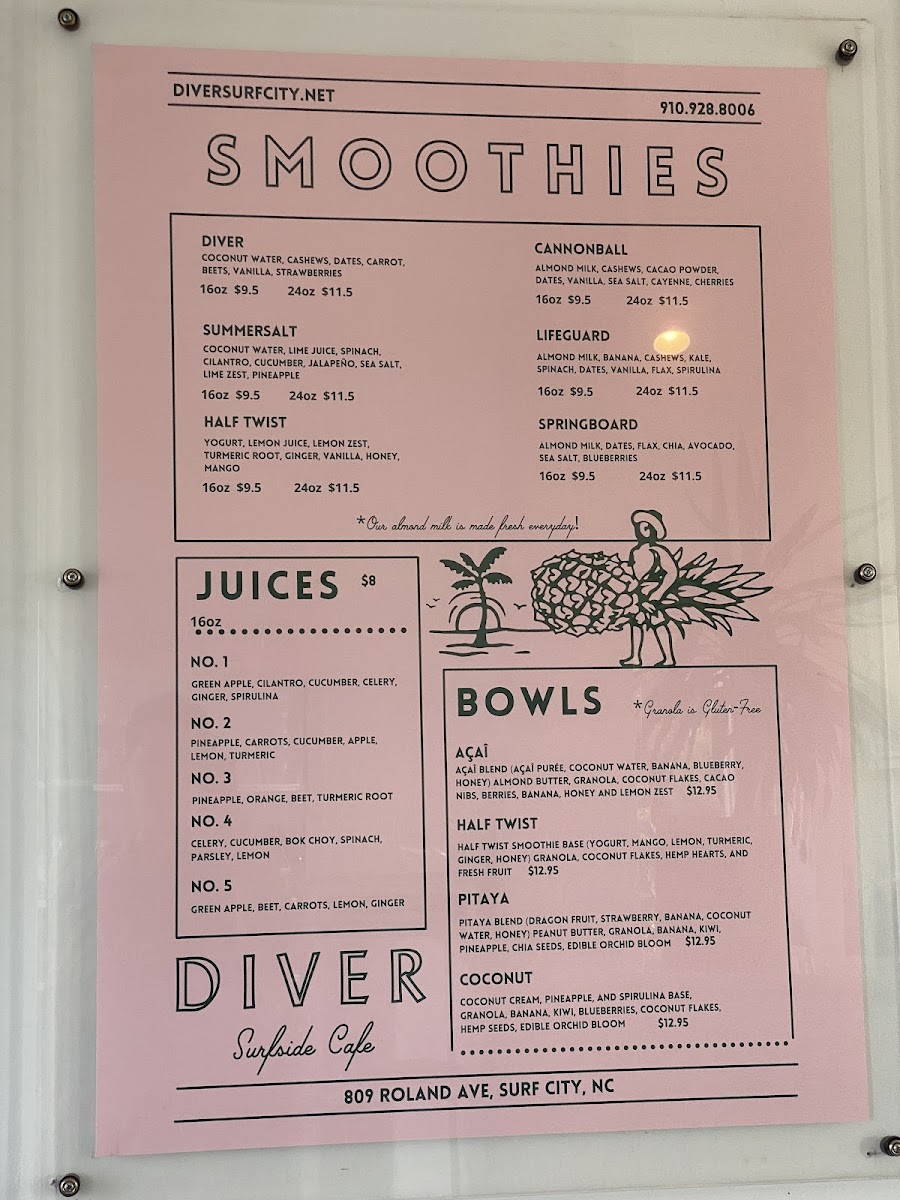 DIVERSURFCITY.NET
910.928.8006
SMOOTHIES
DIVER
COCONUT WATER, CASHEWS, DATES, CARROT,
BEETS, VANILLA, STRAWBERRIES
16oz $9.5 24oz $11.5
SUMMERSALT
COCONUT WATER, LIME JUICE, SPINACH,
CILANTRO, CUCUMBER, JALAPEÑO, SEA SALT,
LIME ZEST, PINEAPPLE
16oz $9.5 24oz $11.5
HALF TWIST
YOGURT, LEMON JUICE, LEMON ZEST,
TURMERIC ROOT, GINGER, VANILLA, HONEY,
MANGO
16oz $9.5 24oz $11.5
CANNONBALL
ALMOND MILK, CASHEWS, CACAO POWDER,
DATES, VANILLA, SEA SALT, CAYENNE, CHERRIES
16oz $9.5 24oz $11.5
LIFEGUARD
ALMOND MILK, BANANA, CASHEWS, KALE,
SPINACH, DATES, VANILLA, FLAX, SPIRULINA
16oz $9.5 24oz $11.5
SPRINGBOARD
ALMOND MILK, DATES, FLAX, CHIA, AVOCADO,
SEA SALT, BLUEBERRIES
16oz $9.5 24oz $11.5
*Our almond milk is made fresh everyday!
JUICES $8
16oz
NO. 1
GREEN APPLE, CILANTRO, CUCUMBER, CELERY,
GINGER, SPIRULINA
NO. 2
PINEAPPLE, CARROTS, CUCUMBER, APPLE,
LEMON, TURMERIC
NO. 3
PINEAPPLE, ORANGE, BEET, TURMERIC ROOT
NO. 4
CELERY, CUCUMBER, BOK CHOY, SPINACH,
PARSLEY, LEMON
NO. 5
GREEN APPLE, BEET, CARROTS, LEMON, GINGER
BOWLS *Granola is Gluten-Free
AÇAÎ
AÇAÎ BLEND (AÇAÎ PURÉE, COCONUT WATER, BANANA, BLUEBERRY,
HONEY) ALMOND BUTTER, GRANOLA, COCONUT FLAKES, CACAO
NIBS, BERRIES, BANANA, HONEY AND LEMON ZEST $12.95
HALF TWIST
HALF TWIST SMOOTHIE BASE (YOGURT, MANGO, LEMON, TURMERIC,
GINGER, HONEY) GRANOLA, COCONUT FLAKES, HEMP HEARTS, AND
FRESH FRUIT $12.95
PITAYA
PITAYA BLEND (DRAGON FRUIT, STRAWBERRY, BANANA, COCONUT
WATER, HONEY) PEANUT BUTTER, GRANOLA, BANANA, KIWI,
PINEAPPLE, CHIA SEEDS, EDIBLE ORCHID BLOOM $12.95
COCONUT
COCONUT CREAM, PINEAPPLE, AND SPIRULINA BASE,
GRANOLA, BANANA, KIWI, BLUEBERRIES, COCONUT FLAKES,
HEMP SEEDS, EDIBLE ORCHID BLOOM $12.95
DIVER
Surfside Cafe
809 ROLAND AVE, SURF CITY, NC